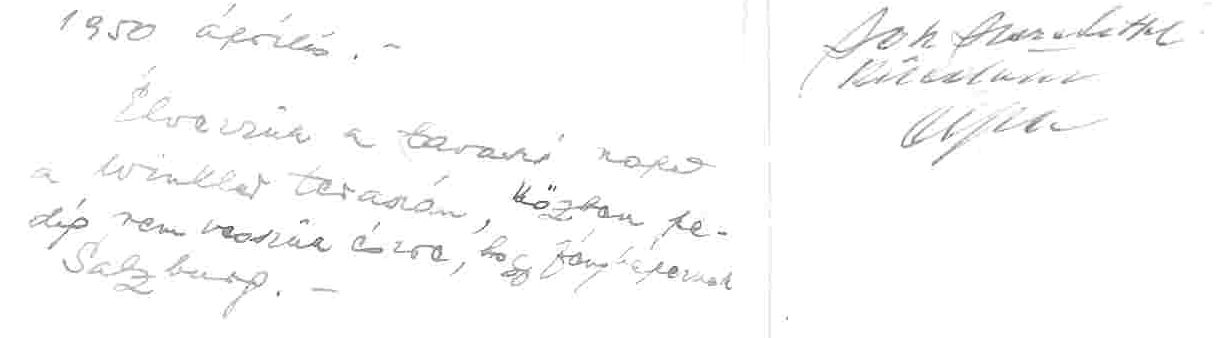 1950 április. -
Élvezzük a tavaszi napot
a Winkler teraszán, közben pe-
dig nem vesszük észre, hogy fényképeznek
Salzburg. -
Sok szeretettel